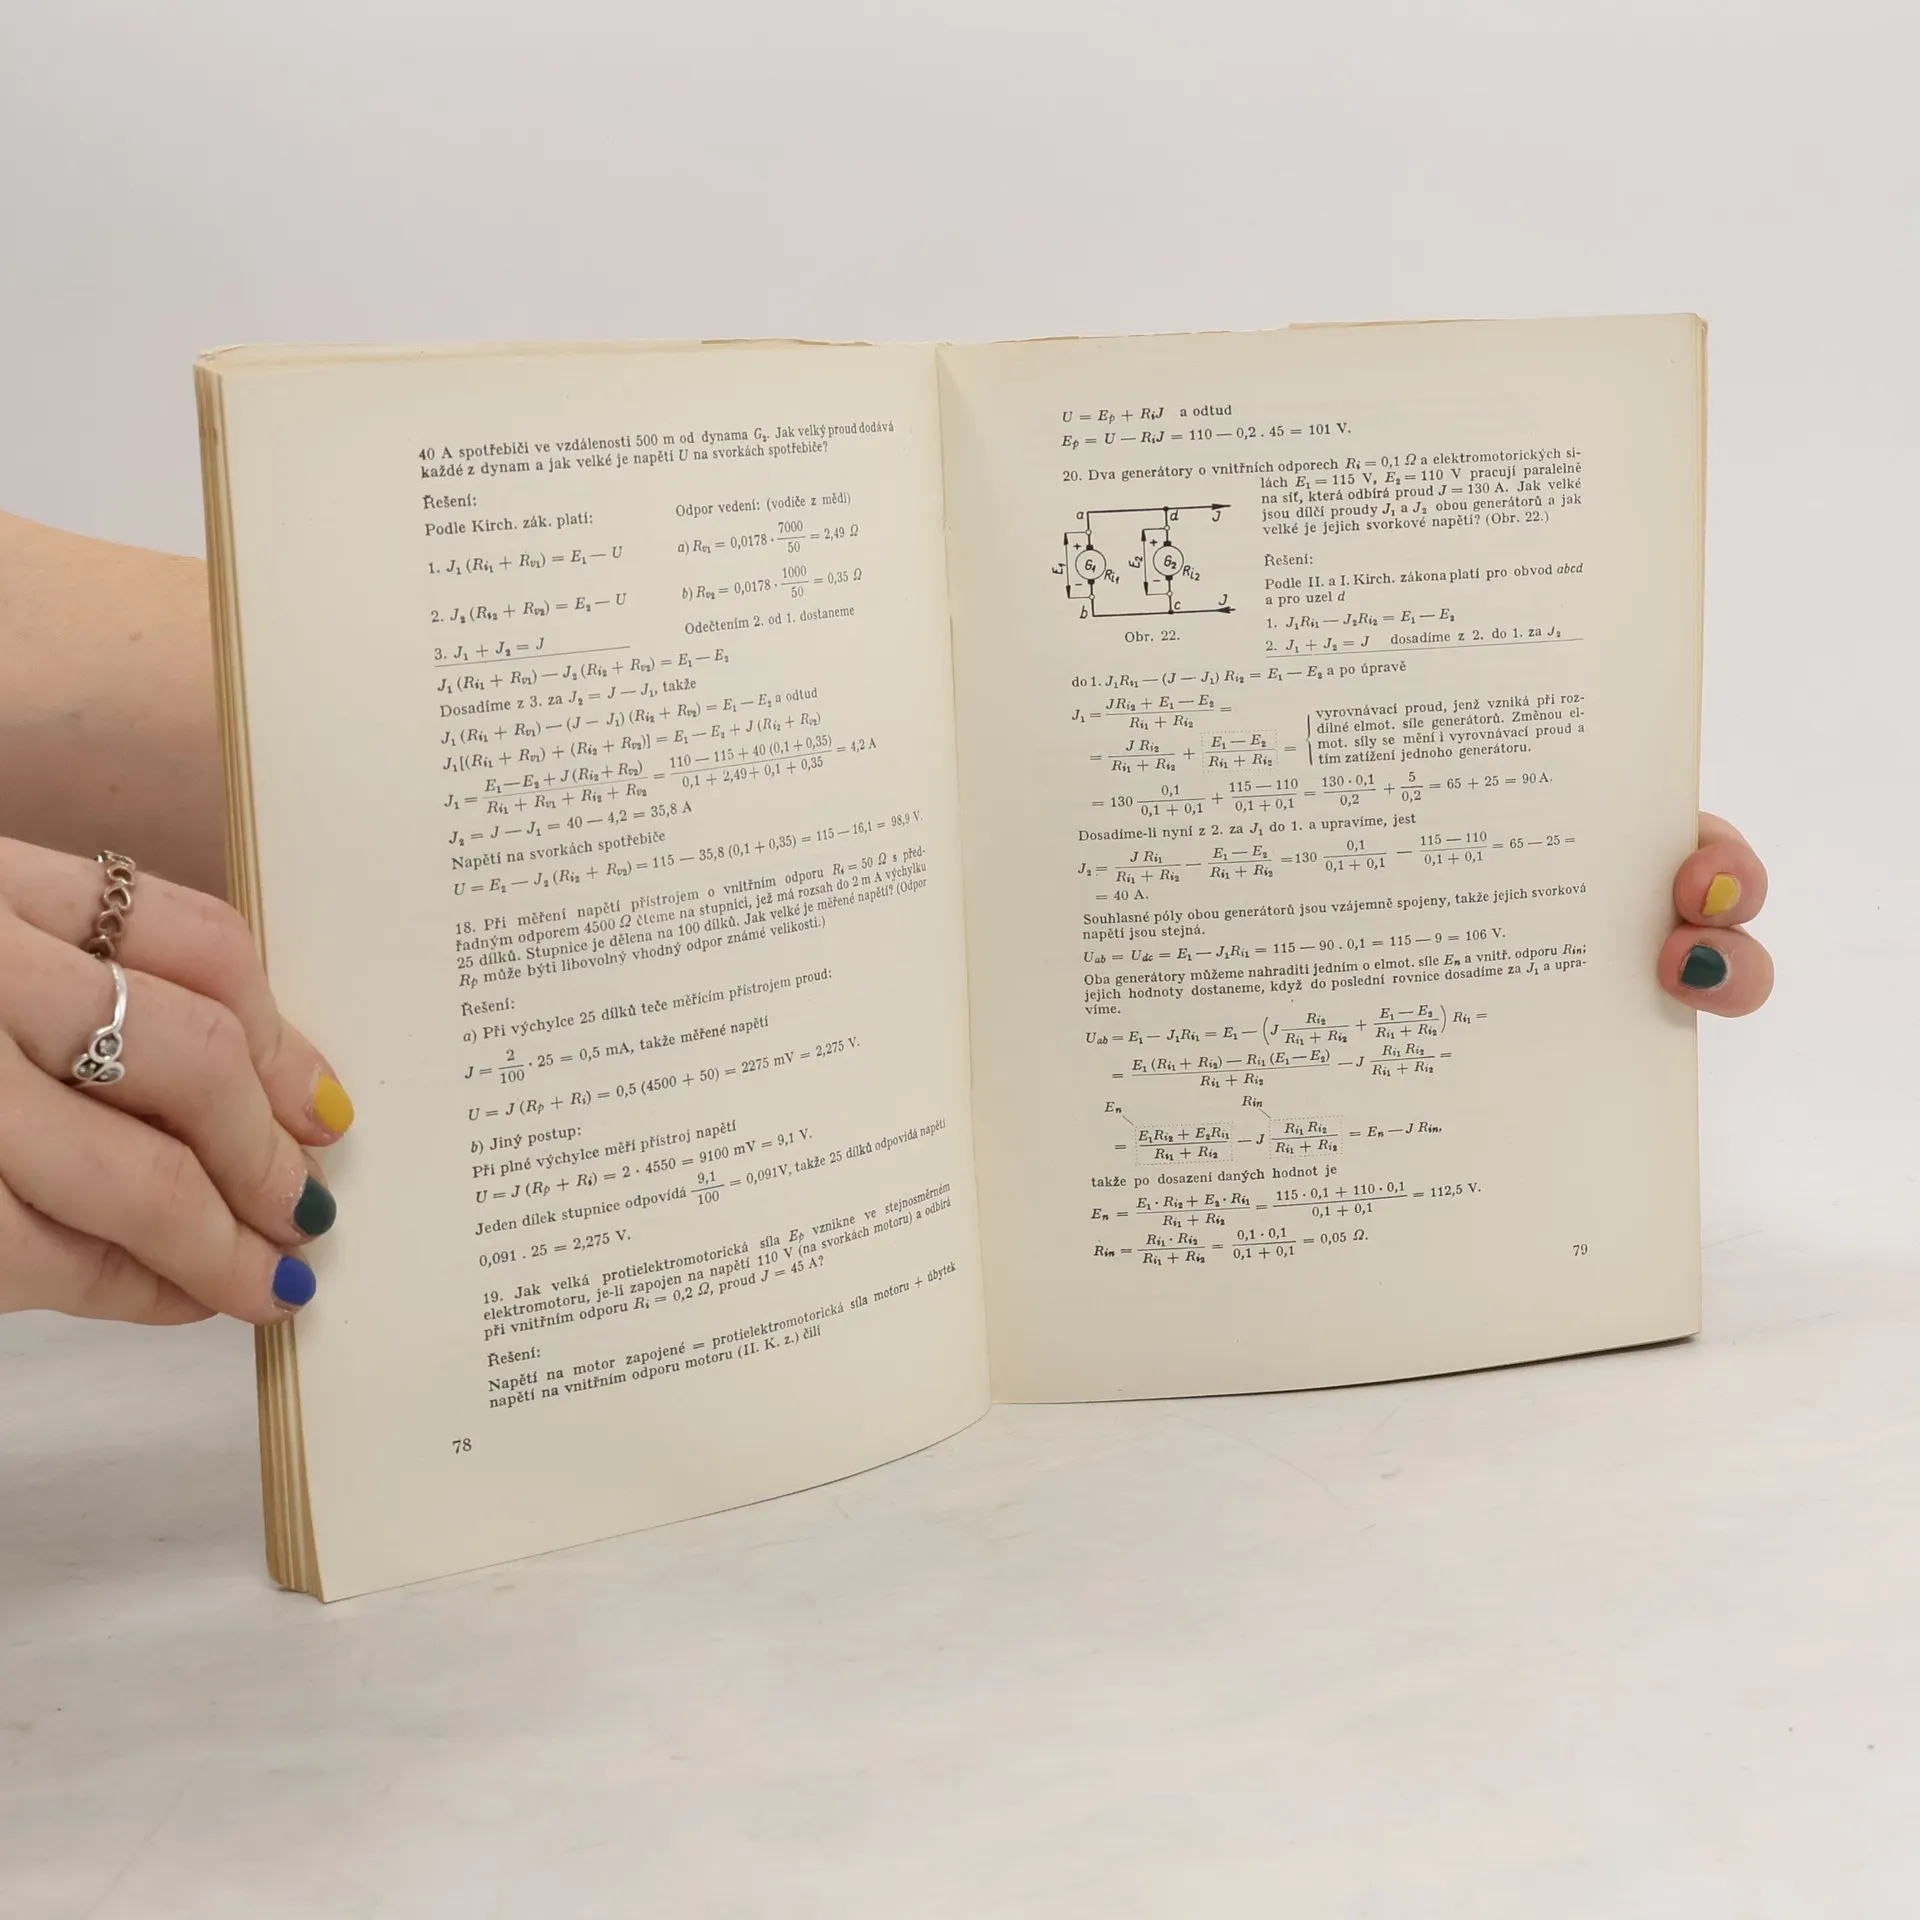 40 A spotřebiči ve vzdálenosti 500 m od dynama G₂. Jak velký proud dodává
každé z dynam a jak velké je napětí U na svorkách spotřebiče?
Řešení:
Podle Kirch. zák. platí:
Odpor vedení: (vodiče z mědi)
1. J₁ (Ri₁ + Rv₁) = E₁ — U
a) Rv₁ = 0,0178 · 7000/50 = 2,49 Ω
2. J₂ (Ri₂ + Rv₂) = E₂ — U
b) Rv₂ = 0,0178 · 1000/50 = 0,35 Ω
3. J₁ + J₂ = J
Odečtením 2. od 1. dostaneme
J₁ (Ri₁ + Rv₁) — J₂ (Ri₂ + Rv₂) = E₁ — E₂
Dosadíme z 3. za J₂ = J — J₁, takže
J₁ (Ri₁ + Rv₁) — (J — J₁) (Ri₂ + Rv₂) = E₁ — E₂ a odtud
J₁[(Ri₁ + Rv₁) + (Ri₂ + Rv₂)] = E₁ — E₂ + J (Ri₂ + Rv₂)
J₁ = (E₁ — E₂ + J (Ri₂ + Rv₂))/(Ri₁ + Rv₁ + Ri₂ + Rv₂) = (110 — 115 + 40 (0,1 + 0,35))/(0,1 + 2,49 + 0,1 + 0,35) = 4,2 A
J₂ = J — J₁ = 40 — 4,2 = 35,8 A
Napětí na svorkách spotřebiče
U = E₂ — J₂ (Ri₂ + Rv₂) = 115 — 35,8 (0,1 + 0,35) = 115 — 16,1 = 98,9 V.
18. Při měření napětí přístrojem o vnitřním odporu Ri = 50 Ω s před-
řadným odporem 4500 Ω čteme na stupnici, jež má rozsah do 2 m A výchylku
25 dílků. Stupnice je dělena na 100 dílků. Jak velké je měřené napětí? (Odpor
Rp může býti libovolný vhodný odpor známé velikosti.)
Řešení:
a) Při výchylce 25 dílků teče měřícím přístrojem proud:
J = 2/100 · 25 = 0,5 mA, takže měřené napětí
U = J (Rp + Ri) = 0,5 (4500 + 50) = 2275 mV = 2,275 V.
b) Jiný postup:
Při plné výchylce měří přístroj napětí
U = J (Rp + Ri) = 2 · 4550 = 9100 mV = 9,1 V.
Jeden dílek stupnice odpovídá 9,1/100 = 0,091V, takže 25 dílků odpovídá napětí
0,091 . 25 = 2,275 V.
19. Jak velká protielektromotorická síla Ep vznikne ve stejnosměrném
elektromotoru, je-li zapojen na napětí 110 V (na svorkách motoru) a odbírá
při vnitřním odporu Ri = 0,2 Ω, proud J = 45 A?
Řešení:
Napětí na motor zapojené = protielektromotorická síla motoru + úbytek
napětí na vnitřním odporu motoru (II. K. z.) čili
78
U = Ep + RiJ a odtud
Ep = U — RiJ = 110 — 0,2 . 45 = 101 V.
20. Dva generátory o vnitřních odporech Ri = 0,1 Ω a elektromotorických si-
lách E₁ = 115 V, E₂ = 110 V pracují paralelně
na síť, která odbírá proud J = 130 A. Jak velké
jsou dílčí proudy J₁ a J₂ obou generátorů a jak
velké je jejich svorkové napětí? (Obr. 22.)
a d J
E₁ + G₁ – Ri₁ E₂ + G₂ – Ri₂
b c J
Obr. 22.
Řešení:
Podle II. a I. Kirch. zákona platí pro obvod abcd
a pro uzel d
1. J₁Ri₁ — J₂Ri₂ = E₁ — E₂
2. J₁ + J₂ = J dosadíme z 2. do 1. za J₂
do 1. J₁Ri₁ — (J — J₁) Ri₂ = E₁ — E₂ a po úpravě
J₁ = (JRi₂ + E₁ — E₂)/(Ri₁ + Ri₂) =
= J Ri₂/(Ri₁ + Ri₂) + (E₁ — E₂)/(Ri₁ + Ri₂) =
vyrovnávací proud, jenž vzniká při roz-
dílné elmot. síle generátorů. Změnou el-
mot. síly se mění i vyrovnávací proud a
tím zatížení jednoho generátoru.
= 130 0,1/(0,1 + 0,1) + (115 — 110)/(0,1 + 0,1) = 130 · 0,1/0,2 + 5/0,2 = 65 + 25 = 90 A.
Dosadíme-li nyní z 2. za J₁ do 1. a upravíme, jest
J₂ = J Ri₁/(Ri₁ + Ri₂) — (E₁ — E₂)/(Ri₁ + Ri₂) = 130 0,1/(0,1 + 0,1) — (115 — 110)/(0,1 + 0,1) = 65 — 25 =
= 40 A.
Souhlasné póly obou generátorů jsou vzájemně spojeny, takže jejich svorková
napětí jsou stejná.
Uab = Udc = E₁ — J₁Ri₁ = 115 — 90 . 0,1 = 115 — 9 = 106 V.
Oba generátory můžeme nahraditi jedním o elmot. síle En a vnitř. odporu Rin;
jejich hodnoty dostaneme, když do poslední rovnice dosadíme za J₁ a upra-
víme.
Uab = E₁ — J₁Ri₁ = E₁ — (J Ri₂/(Ri₁ + Ri₂) + (E₁ — E₂)/(Ri₁ + Ri₂)) Ri₁ =
= (E₁ (Ri₁ + Ri₂) — Ri₁ (E₁ — E₂))/(Ri₁ + Ri₂) — J Ri₁ Ri₂/(Ri₁ + Ri₂) =
En Rin
= (E₁Ri₂ + E₂Ri₁)/(Ri₁ + Ri₂) — J Ri₁ Ri₂/(Ri₁ + Ri₂) = En — J Rin,
takže po dosazení daných hodnot je
En = (E₁ · Ri₂ + E₂ · Ri₁)/(Ri₁ + Ri₂) = (115 · 0,1 + 110 · 0,1)/(0,1 + 0,1) = 112,5 V.
Rin = Ri₁ · Ri₂/(Ri₁ + Ri₂) = 0,1 · 0,1/(0,1 + 0,1) = 0,05 Ω.
79